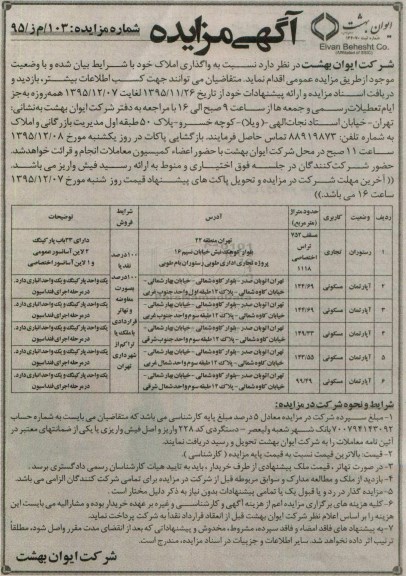 ایوان بهشت
Eivan Behesht Co.
آگهی مزایده
شماره مزایده: ۱۰۳/م ز/۹۵
شرکت ایوان بهشت در نظر دارد نسبت به واگذاری املاک خود با شرایط بیان شده و با وضعیت
موجود از طریق مزایده عمومی اقدام نماید. متقاضیان می توانند جهت کسب اطلاعات بیشتر، بازدید و
دریافت اسناد مزایده و ارائه پیشنهادات خود از تاریخ ۱۳۹۵/۱۱/۲۶ لغایت ۱۳۹۵/۱۲/۰۷ همه روزه به جز
ایام تعطیلات رسمی و جمعه ها از ساعت ۹ صبح الی ۱۶ با مراجعه به دفتر شرکت ایوان بهشت به نشانی:
تهران- خیابان استاد نجات الهی- (ویلا) - کوچه خسرو- پلاک ۵۰ طبقه اول مدیریت بازرگانی و املاک
به شماره تلفن: ۸۸۹۱۹۸۷۳ تماس حاصل فرمایند. بازگشایی پاکات در روز یکشنبه مورخ ۱۳۹۵/۱۲/۰۸
ساعت ۱۱ صبح در محل شرکت ایوان بهشت با حضور اعضاء کمیسیون معاملات انجام و قرائت خواهد شد.
حضور شرکت کنندگان در جلسه فوق اختیاری و منوط به ارائه رسید فیش واریز می باشد.
(( آخرین مهلت شرکت در مزایده و تحویل پاکت های پیشنهاد قیمت روز شنبه مورخ ۱۳۹۵/۱۲/۰۷
ساعت ۱۶ می باشد.))
ردیف وضعیت کاربری حدود متراژ (متر مربع) آدرس شرایط فروش توضیحات
۱ رستوران تجاری مسقف ۷۵۲ تراس اختصاصی ۱۱۱۸ تهران منطقه ۲۲ بلوار کوهک نبش خیابان نسیم ۱۶ پروژه تجاری اداری طوبی رستوران بام طوبی
دارای ۳۳ باب پارکینگ ۲ لاین آسانسور عمومی و ۱ لاین آسانسور اختصاصی
۲ آپارتمان مسکونی ۱۲۴/۶۹ تهران اتوبان صدر - بلوار کاوه شمالی - خیابان بهار شمالی - خیابان کاوه شمالی - پلاک ۱۲ طبقه اول واحد جنوب غربی
یک واحد پارکینگ و یک واحد انباری دارد. در مرحله اجرای فنداسیون
۳ آپارتمان مسکونی ۱۲۴/۶۹ تهران اتوبان صدر - بلوار کاوه شمالی - خیابان بهار شمالی - خیابان کاوه شمالی - پلاک ۱۲ طبقه دوم واحد جنوب غربی
یک واحد پارکینگ و یک واحد انباری دارد. در مرحله اجرای فنداسیون
۴ آپارتمان مسکونی ۱۴۹/۳۳ تهران اتوبان صدر - بلوار کاوه شمالی - خیابان بهار شمالی - خیابان کاوه شمالی - پلاک ۱۲ طبقه سوم واحد جنوب شرقی
یک واحد پارکینگ و یک واحد انباری دارد. در مرحله اجرای فنداسیون
۵ آپارتمان مسکونی ۱۴۳/۵۵ تهران اتوبان صدر - بلوار کاوه شمالی - خیابان بهار شمالی - خیابان کاوه شمالی - پلاک ۱۲ طبقه سوم واحد شمال غربی
یک واحد پارکینگ و یک واحد انباری دارد. در مرحله اجرای فنداسیون
۶ آپارتمان مسکونی ۹۹/۴۹ تهران اتوبان صدر - بلوار کاوه شمالی - خیابان بهار شمالی - خیابان کاوه شمالی - پلاک ۱۲ طبقه سوم واحد شمال شرقی
یک واحد پارکینگ و یک واحد انباری دارد. در مرحله اجرای فنداسیون
۱۰۰ درصد نقد یا ۱۰۰ درصد بصورت معاوضه و تهاتر قراردادی با ملک یا تراکم از شهرداری تهران
شرایط و نحوه شرکت در مزایده:
۱- مبلغ سپرده شرکت در مزایده معادل ۵ درصد مبلغ پایه کارشناسی می باشد که متقاضیان می بایست به شماره حساب
۷۰۰۷۹۴۱۴۳۰۹۲ بانک شهر شعبه ولیعصر – دستگردی کد ۲۲۸ واریز و اصل فیش واریزی یا یکی از ضمانتهای معتبر در
آئین نامه معاملات را به شرکت ایوان بهشت تحویل و رسید دریافت نمایند.
۲- قیمت: بالاترین قیمت نسبت به قیمت پایه مزایده ( کارشناسی ).
۳- در صورت تهاتر، قیمت ملک پیشنهادی از طرف خریدار، باید به تایید هیات کارشناسان رسمی دادگستری برسد.
۴- بازدید از ملک و مطالعه مدارک و سوابق مربوطه قبل از شرکت در مزایده برای تمامی شرکت کنندگان الزامی می باشد.
۵- مزایده گذار در رد و یا قبول یک یا تمامی پیشنهادات بدون نیاز به ذکر دلیل مختار است.
۶- کلیه هزینه های برگزاری مزایده اعم از هزینه آگهی و کارشناسی و غیره بر عهده خریدار بوده و مشارالیه می بایست این
هزینه را بر اساس اعلام نظر شرکت ایوان بهشت قبل از انعقاد قرارداد نقداً به شرکت پرداخت نماید.
۷- به پیشنهاد های فاقد امضاء و فاقد سپرده، مشروط، مخدوش و پیشنهاداتی که بعد از انقضای مدت مقرر واصل شود، مطلقاً
ترتیب اثر داده نخواهد شد. سایر اطلاعات و جزییات در اسناد مزایده، مندرج است.
شرکت ایوان بهشت